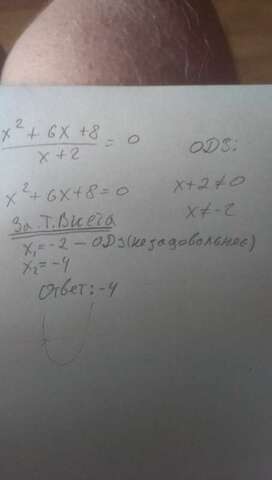 x² + 6x + 8 / x + 2 = 0
ОДЗ:
x² + 6x + 8 = 0
x + 2 ≠ 0
За Т. Виета
x ≠ -2
x₁ = -2 - ОДЗ (незадовольнее)
x₂ = -4
Ответ: -4